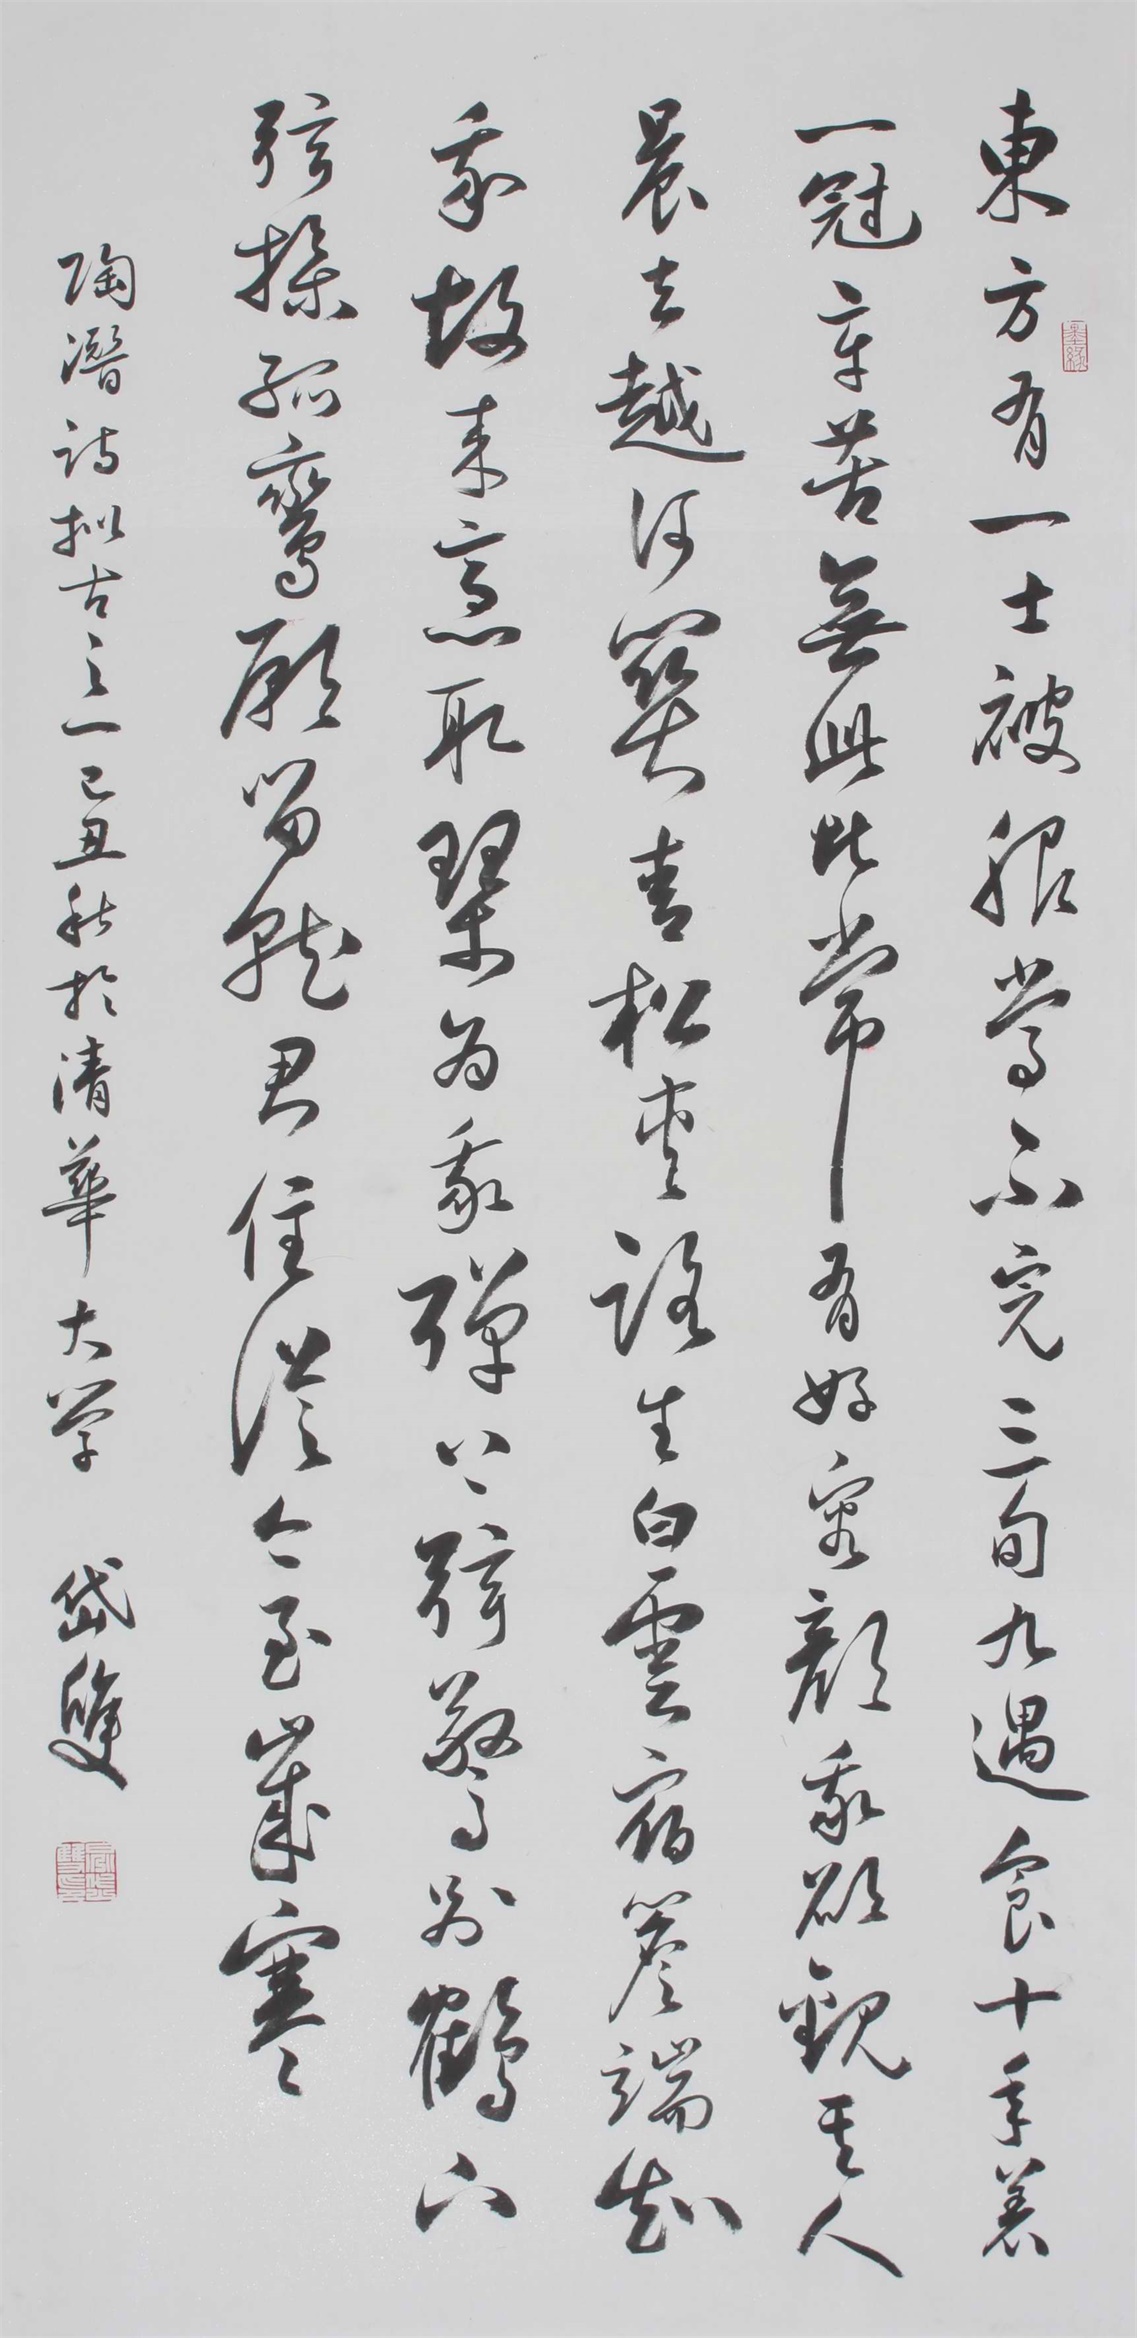 東方有一士被服常不完三旬九遇食十年着
一冠辛苦無此比常有好容顏我欲觀其人
晨去越河關青松夾路生白雲宿簷端知
我故來意取琴為我彈上弦驚別鶴下
弦操孤鸞願留就君住從今至歲寒
陶潛詩擬古之一己丑秋於清華大學 岱雙
墨緣